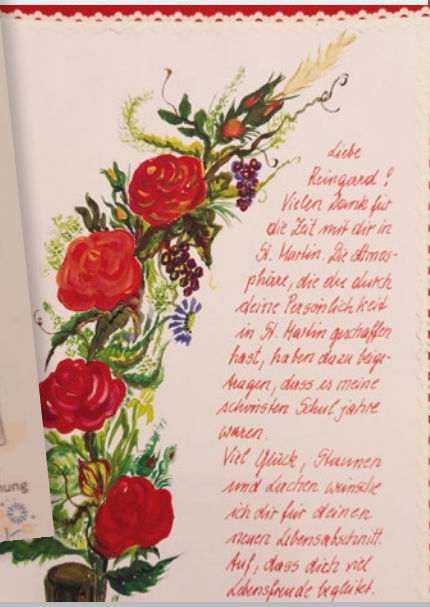 Liebe
Reingard!
Vielen Dank für
die Zeit mit dir in
St. Martin. Die Atmos-
phäre, die du durch
deine Persönlichkeit
in St. Martin geschaffen
hast, haben dazu beige-
tragen, dass es meine
schönsten Schuljahre
waren.
Viel Glück, Staunen
und Lachen wünsche
ich dir für deinen
neuen Lebensabschnitt.
Auf, dass dich viel
Lebensfreude begleitet.
nung